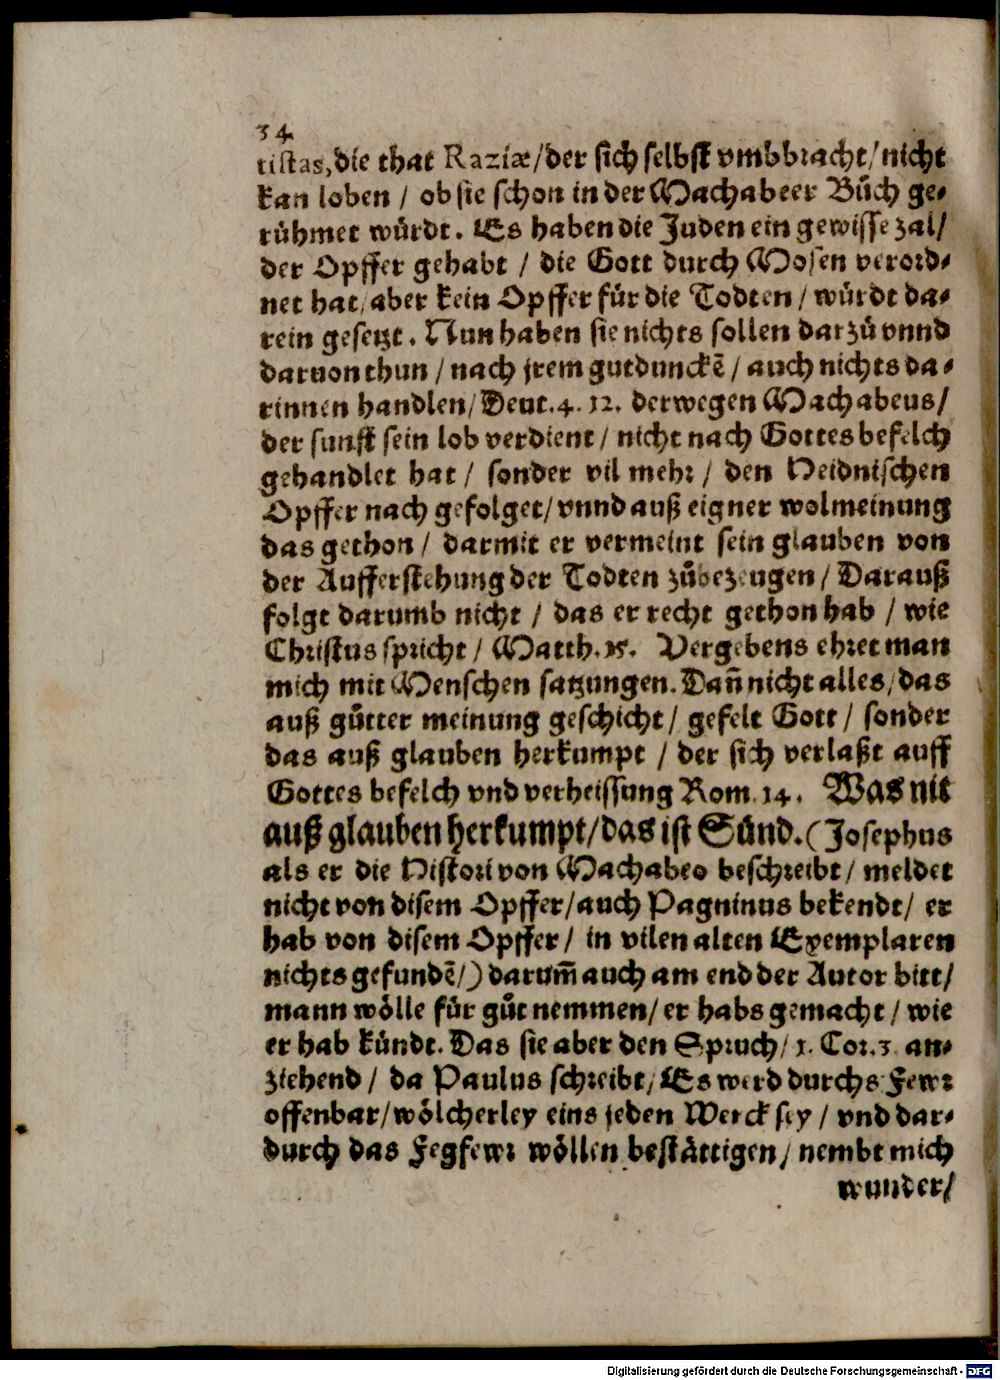 34.
tistas, die that Raziæ/der sich selbst vmbbracht/nicht
kan loben / ob sie schon in der Machabeer Bůch ge-
rühmet würdt. Es haben die Juden ein gewisse zal/
der Opffer gehabt / die Gott durch Mosen verord-
net hat/aber kein Opffer für die Todten / würdt da-
rein gesetzt. Nun haben sie nichts sollen darzů vnnd
daruon thun / nach jrem gutdunckẽ / auch nichts da-
rinnen handlen/ Deut.4. 12. derwegen Machabeus/
der sunst sein lob verdient / nicht nach Gottes befelch
gehandlet hat / sonder vil mehr / den Heidnischen
Opffer nach gefolget/ vnnd auß eigner wolmeinung
das gethon / darmit er vermeint sein glauben von
der Aufferstehung der Todten zůbezeugen / Darauß
folgt darumb nicht / das er recht gethon hab / wie
Christus spricht / Matth.15. Vergebens ehret man
mich mit Menschen satzungen. Dañ nicht alles/das
auß gůtter meinung geschicht / gefelt Gott / sonder
das auß glauben herkumpt / der sich verlaßt auff
Gottes befelch vnd verheissung Rom.14. Was nit
auß glauben herkumpt/das ist Sünd. (Josephus
als er die Histori von Machabeo beschreibt / meldet
nicht von disem Opffer/auch Pagninus bekendt/ er
hab von disem Opffer / in vilen alten Exemplaren
nichts gefundẽ/) darum̃ auch am end der Autor bitt/
mann wölle für gůt nemmen/ er habs gemacht / wie
er hab kündt. Das sie aber den Spruch/ 1. Cor.3 an-
ziehend / da Paulus schreibt/ Es werd durchs Fewr
offenbar/wölcherley eins jeden Werck sey / vnd dar-
durch das Fegfewr wöllen bestättigen / nembt mich
wunder/
Digitalisierung gefördert durch die Deutsche Forschungsgemeinschaft - DFG